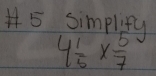 #5 Simplify
4 1/5 × 5/7